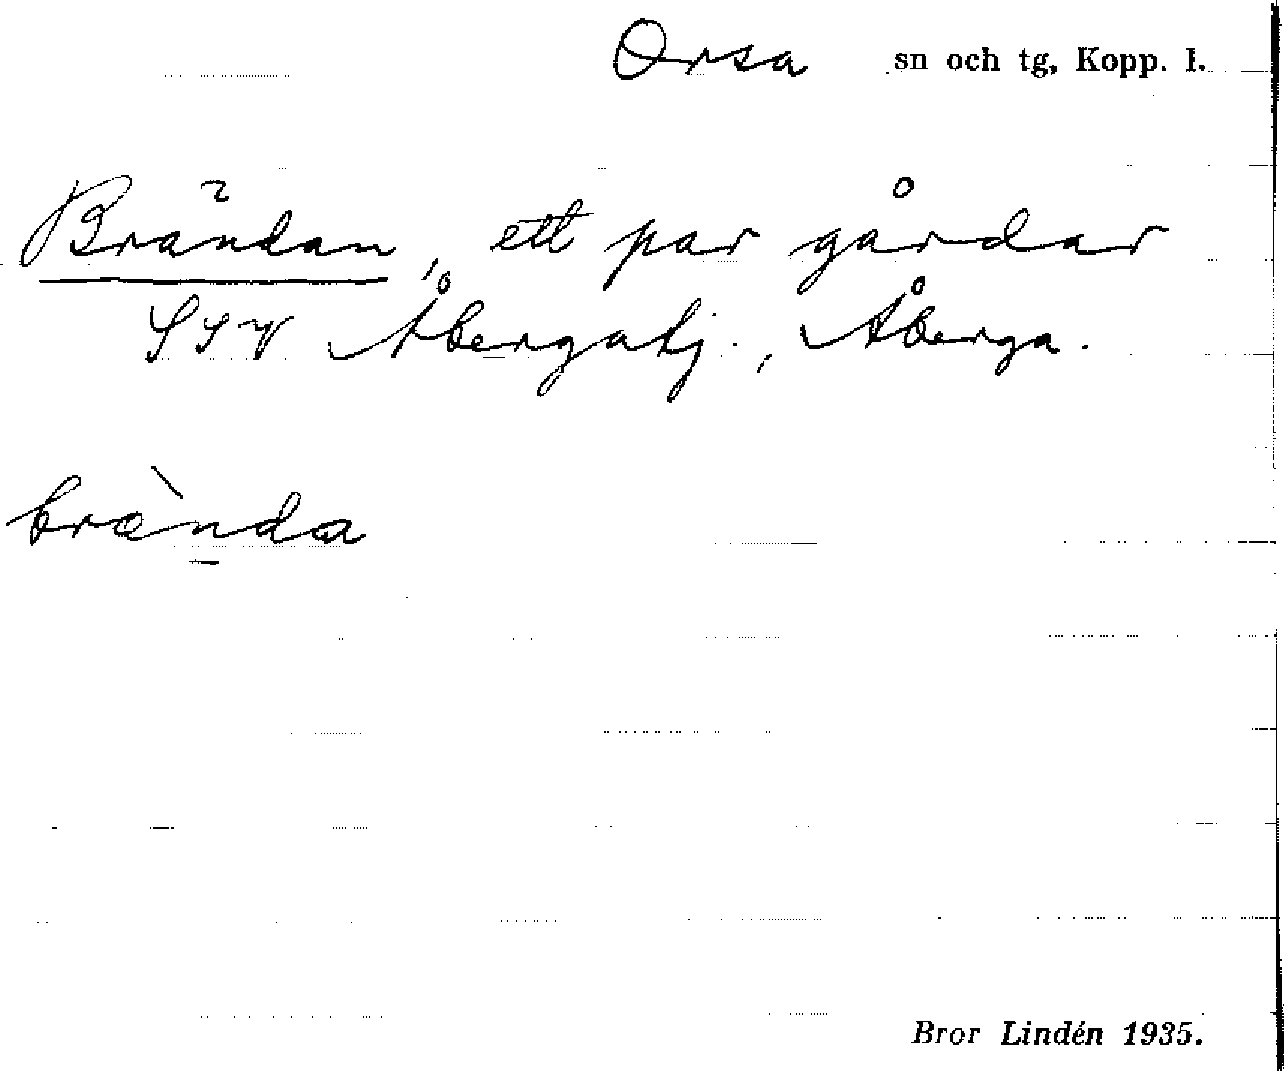 Orsa sn och tg, Kopp. l.
Brändan, ett par gårdar
SSV Åbergatj., Åberga.
brända
Bror Lindén 1935.